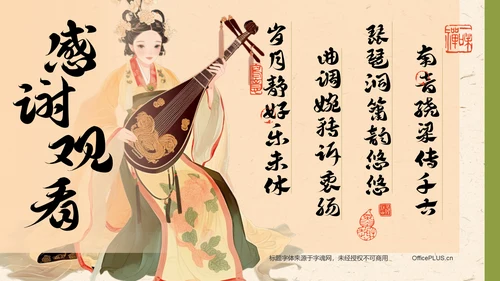 感谢观看
南音绕梁传千六
琵琶洞箫韵悠悠
曲调婉转诉衷肠
岁月静好乐未休
标题字体来源于字魂网，未经授权不可商用
OfficePLUS.cn